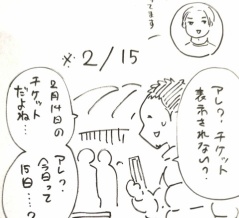 てます
※2/15
アレ?チケット
表示されない?
2月14日の
チケット
だよね…
アレ?
今日って
15日…?